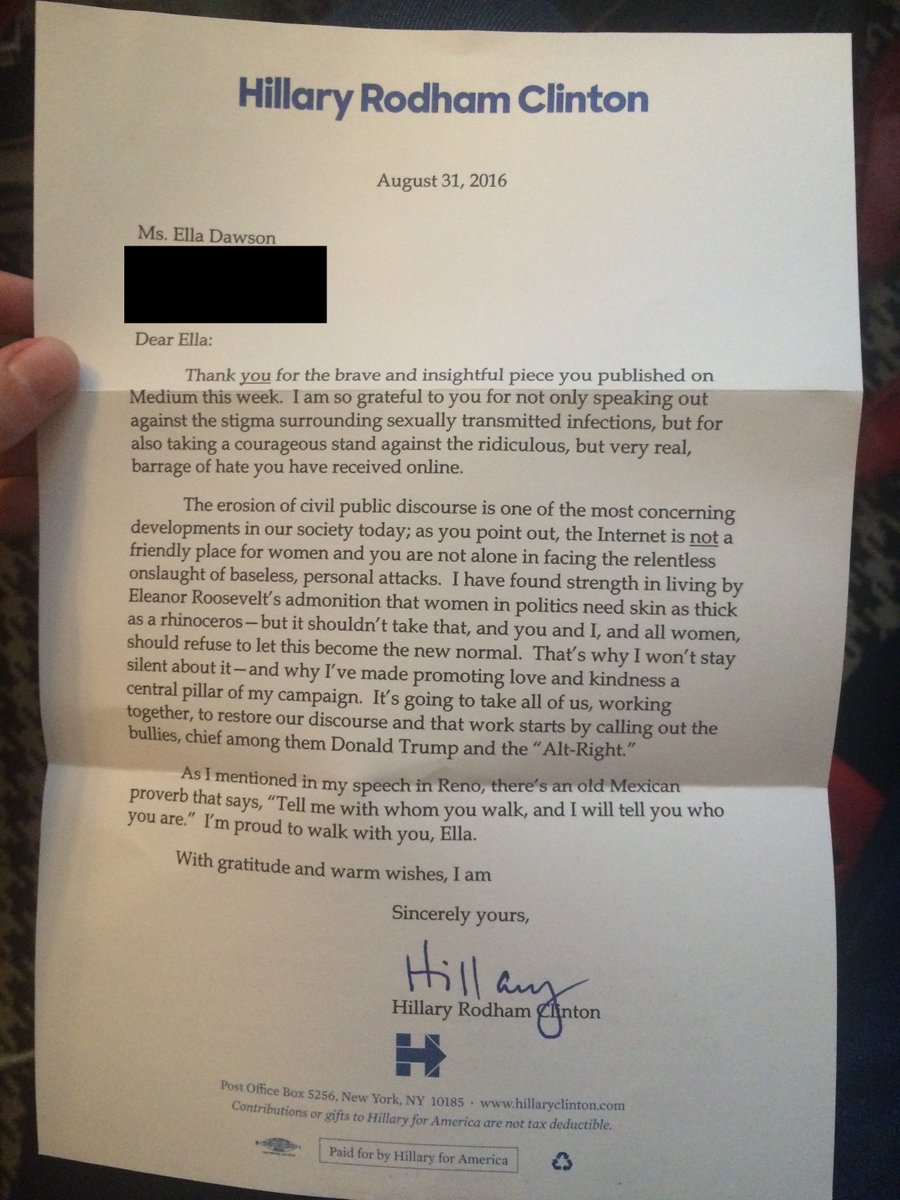 Hillary Rodham Clinton
August 31, 2016
Ms. Ella Dawson
Dear Ella:
Thank you for the brave and insightful piece you published on
Medium this week. I am so grateful to you for not only speaking out
against the stigma surrounding sexually transmitted infections, but for
also taking a courageous stand against the ridiculous, but very real,
barrage of hate you have received online.
The erosion of civil public discourse is one of the most concerning
developments in our society today; as you point out, the Internet is not a
friendly place for women and you are not alone in facing the relentless
onslaught of baseless, personal attacks. I have found strength in living by
Eleanor Roosevelt's admonition that women in politics need skin as thick
as a rhinoceros—but it shouldn't take that, and you and I, and all women,
should refuse to let this become the new normal. That's why I won't stay
silent about it—and why I've made promoting love and kindness a
central pillar of my campaign. It's going to take all of us, working
together, to restore our discourse and that work starts by calling out the
bullies, chief among them Donald Trump and the “Alt-Right.”
As I mentioned in my speech in Reno, there's an old Mexican
proverb that says, “Tell me with whom you walk, and I will tell you who
you are.” I'm proud to walk with you, Ella.
With gratitude and warm wishes, I am
Sincerely yours,
Hillary
Hillary Rodham Clinton
H
Post Office Box 5256, New York, NY 10185 · www.hillaryclinton.com
Contributions or gifts to Hillary for America are not tax deductible.
Paid for by Hillary for America